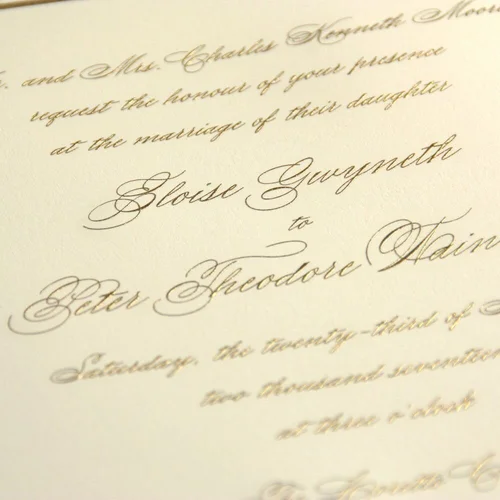 and Mrs. Charles Kenneth
request the honour of your presence
at the marriage of their daughter
Eloise Gwyneth
to
Peter Theodore
Saturday, the twenty-third of
two thousand seventeen
at three o'clock